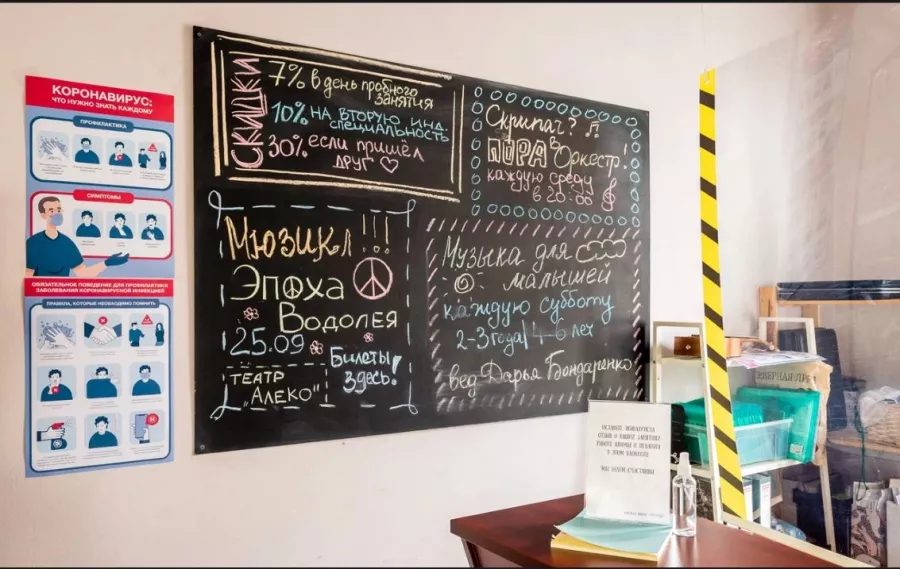 КОРОНАВИРУС:
ЧТО НУЖНО ЗНАТЬ КАЖДОМУ
ПРОФИЛАКТИКА
СИМПТОМЫ
ОБЯЗАТЕЛЬНОЕ ПОВЕДЕНИЕ ДЛЯ ПРОФИЛАКТИКИ
ЗАБОЛЕВАНИЯ КОРОНАВИРУСНОЙ ИНФЕКЦИЕЙ
ПРАВИЛА, КОТОРЫЕ НЕОБХОДИМО ПОМНИТЬ
СКИДКИ
7% в день пробного
занятия
10% на вторую инд.
специальность
30% если пришёл
друг
Скрипач?
ПОРА в Оркестр!
каждую среду
в 20:00
Мюзикл!!!
Эпоха
Водолея
25.09
Билеты
здесь!
ТЕАТР
"АЛЕКО"
Музыка для
малышей
каждую субботу
2-3 года | 4-6 лет
вед. Дарья Бондаренко
ОСТАВЬТЕ ПОЖАЛУЙСТА
ОТЗЫВ О
В ЭТОМ БЛОКНОТЕ
МЫ БУДЕМ СЧАСТЛИВЫ